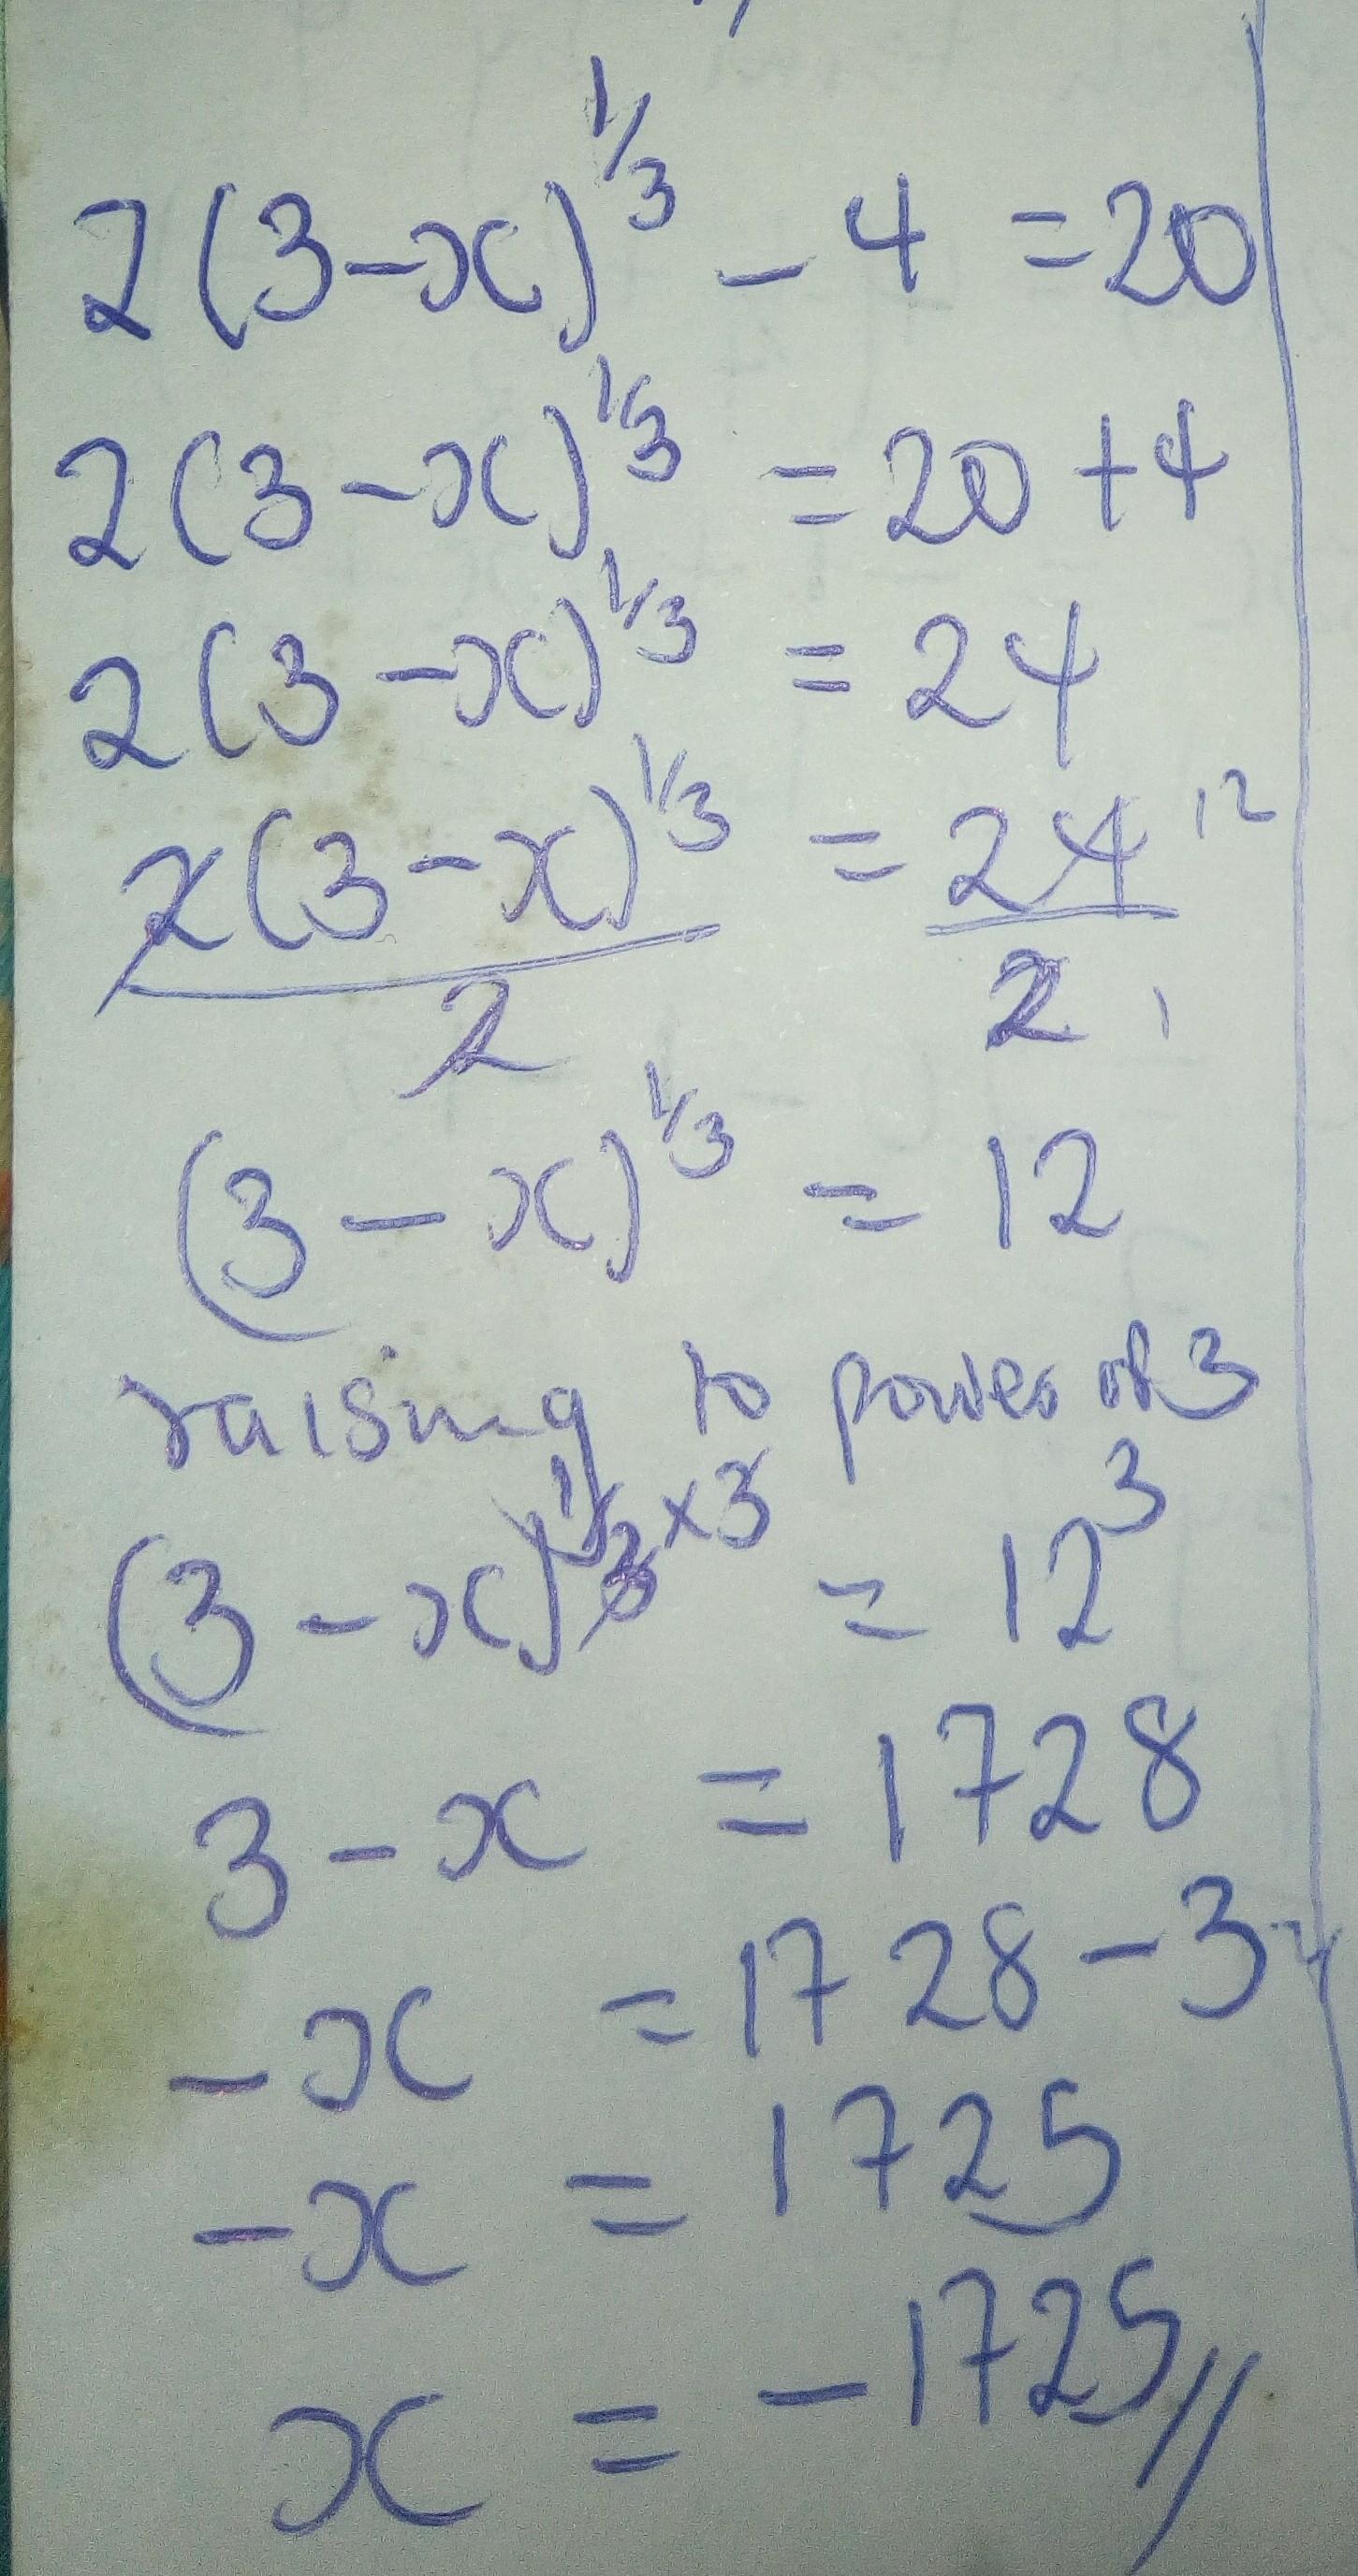 2(3-x)^1/3 - 4 = 20
2(3-x)^1/3 = 20 + 4
2(3-x)^1/3 = 24
2(3-x)^1/3 = 24 12
2 2 1
(3-x)^1/3 = 12
raising to power of 3
(3-x)^1/3 × 3 = 12^3
3 - x = 1728
-x = 1728 - 3
-x = 1725
x = -1725//